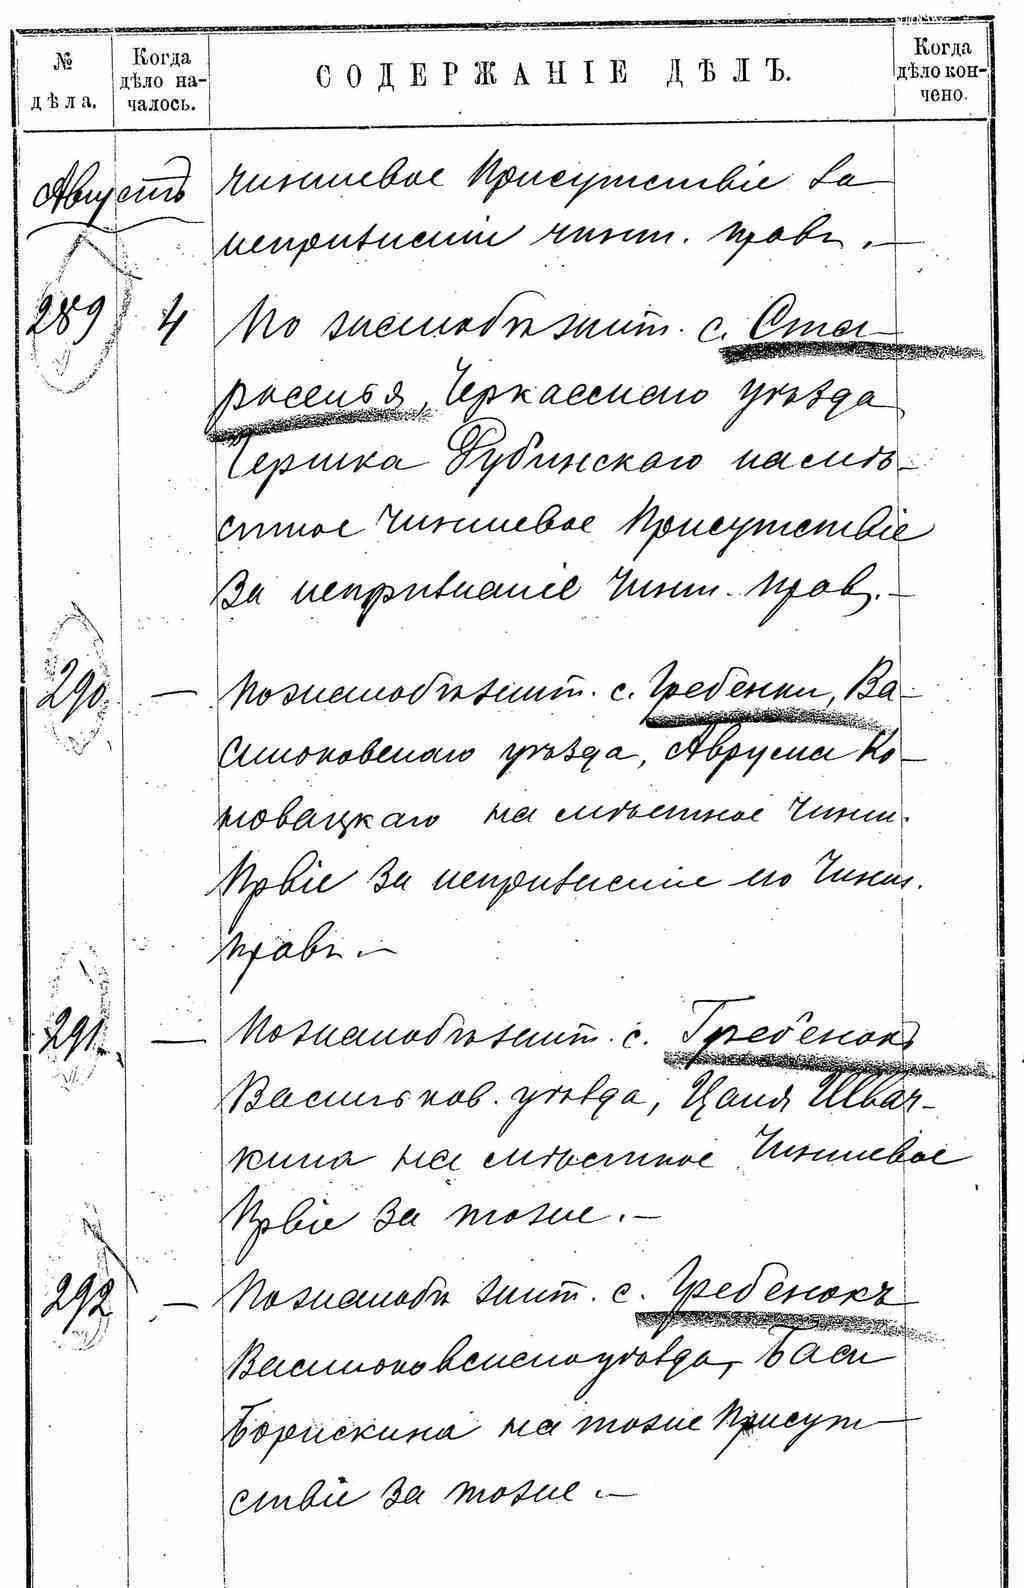 № дѣла.
Когда дѣло началось.
СОДЕРЖАНІЕ ДѢЛЪ.
Когда дѣло кончено.
Августъ
чиншевое Присутствіе за
непризнаніи чинш. правъ.—
289 4 По жалобѣ жит. с. Ста-
роселья, Черкасскаго уѣзда
Гершка Дубинскаго на мѣ-
стное Чиншевое Присутствіе
за непризнаніе Чинш. прав.—
290 — По жалобѣ жит. с. Гребенки, Ва-
сильковскаго уѣзда, Аврума Ко-
новацкаго на мѣстное Чинш.
Првіе за непризнаніе его Чинш.
правъ.—
291 — По жалобѣ жит. с. Гребенокъ
Васильков. уѣзда, Цаля Швач-
кина на мѣстное Чиншевое
Првіе за тоже.—
292 — По жалобѣ жит. с. Гребенокъ
Васильковскаго уѣзда, Баси
Борискина на тоже Присут-
ствіе за тоже.—